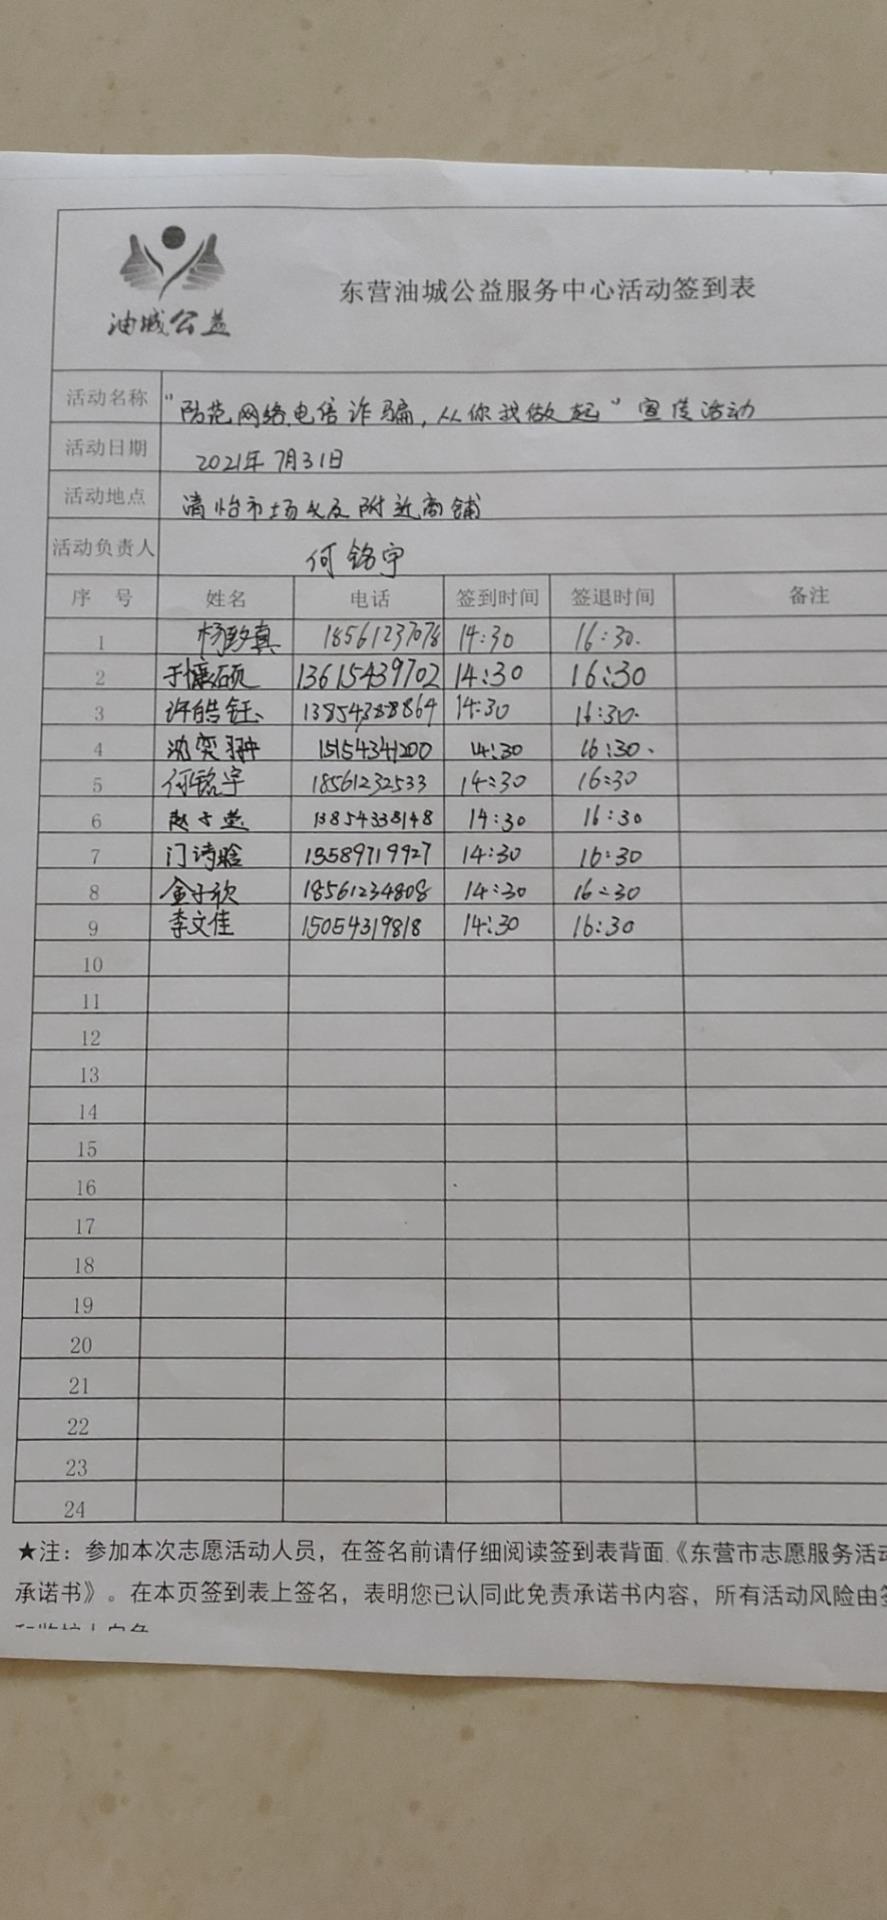 油城公益
东营油城公益服务中心活动签到表
活动名称 "防范网络电信诈骗,从你我做起"宣传活动
活动日期 2021年7月31日
活动地点 清怡市场以及附近商铺
活动负责人 何铭宇
序号 姓名 电话 签到时间 签退时间 备注
1 杨致真 18561237078 14:30 16:30.
2 于懷硕 13615439702 14:30 16:30
3 许皓钰 13854388864 14:30 16:30.
4 沈奕翀 15154341200 14:30 16:30.
5 何铭宇 18561232533 14:30 16:30
6 赵子 13854338148 14:30 16:30
7 门诗晗 13589719927 14:30 16:30
8 金子欣 18561234808 14:30 16:30
9 李文佳 15054319818 14:30 16:30
10
11
12
13
14
15
16
17
18
19
20
21
22
23
24
★注：参加本次志愿活动人员，在签名前请仔细阅读签到表背面《东营市志愿服务活动
承诺书》。在本页签到表上签名，表明您已认同此免责承诺书内容，所有活动风险由签